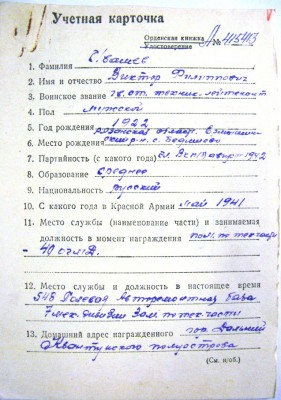 Учетная карточка
Орденская книжка
Удостоверение А № 415403
1. Фамилия
2. Имя и отчество Виктор Филиппович
3. Воинское звание гв. ст. техник-лейтенант
4. Пол мужской
5. Год рождения 1922
6. Место рождения
7. Партийность (с какого года) чл. ВКП(б) август 1942
8. Образование среднее
9. Национальность русский
10. С какого года в Красной Армии май 1941
11. Место службы (наименование части) и занимаемая
должность в момент награждения пом. по тех части
12. Место службы и должность в настоящее время
548 Полевая Авторемонтная База
7 мех. дивизии Зам. по тех части
13. Домашний адрес награжденного гор. Дальний
Квантунского полуострова
(См. н/об.)